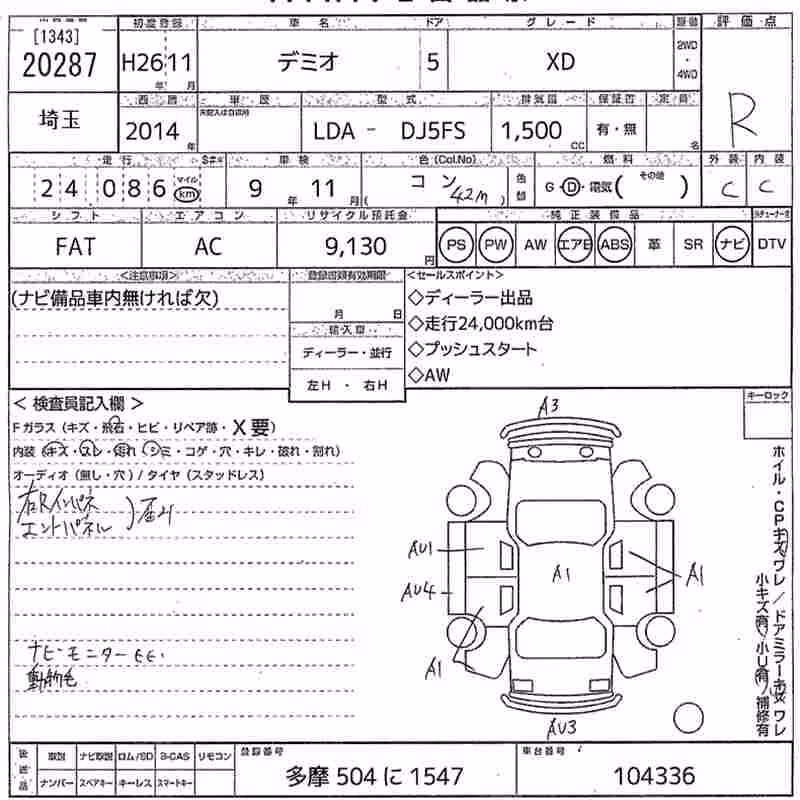 [1343]
20287
初度登録
車名
ドア
グレード
評価点
H26 11
年 月
デミオ
5
XD
2WD
・
4WD
R
埼玉
西暦
車歴
型式
排気量
保証書
定員
2014
年
LDA - DJ5FS
1,500
CC
有・無
名
走行
S#
車検
色 (Col.No)
燃料
外装
内装
24086
マイル
km
9 年 11 月
コン
42M
色替
G・D・電気( その他 )
C
C
シフト
エアコン
リサイクル預託金
純正装備品
FAT
AC
9,130
円
PS
PW
AW
エアB
ABS
革
SR
ナビ
DTV
<注意事項>
登録書類有効期限
<セールスポイント>
(ナビ備品車内無ければ欠)
月 日
輸入車
ディーラー・並行
左H ・ 右H
◇ディーラー出品
◇走行24,000km台
◇プッシュスタート
◇AW
< 検査員記入欄 >
キーロック
Fガラス (キズ・飛石・ヒビ・リペア跡・X要)
内装 (キズ・スレ・汚れ・シミ・コゲ・穴・キレ・破れ・割れ)
オーディオ (無し・穴) / タイヤ (スタッドレス)
右Rインパネ
エンドパネル
ナビモニター
動物毛
A3
AU1
AU4
A1
A1
A1
AU3
ホイル・CPキズ ワレ / ドアミラーキズ ワレ
小キズ有 / 小U有 / 補修有
後送品
取説
ナビ取説
ロム/SD
B-CAS
リモコン
ナンバー
スペアキー
キーレス
スマートキー
登録番号
多摩 504 に 1547
車台番号
104336